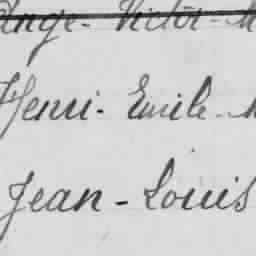 Ange-Victor-M
Henri-Emile-M
Jean-Louis